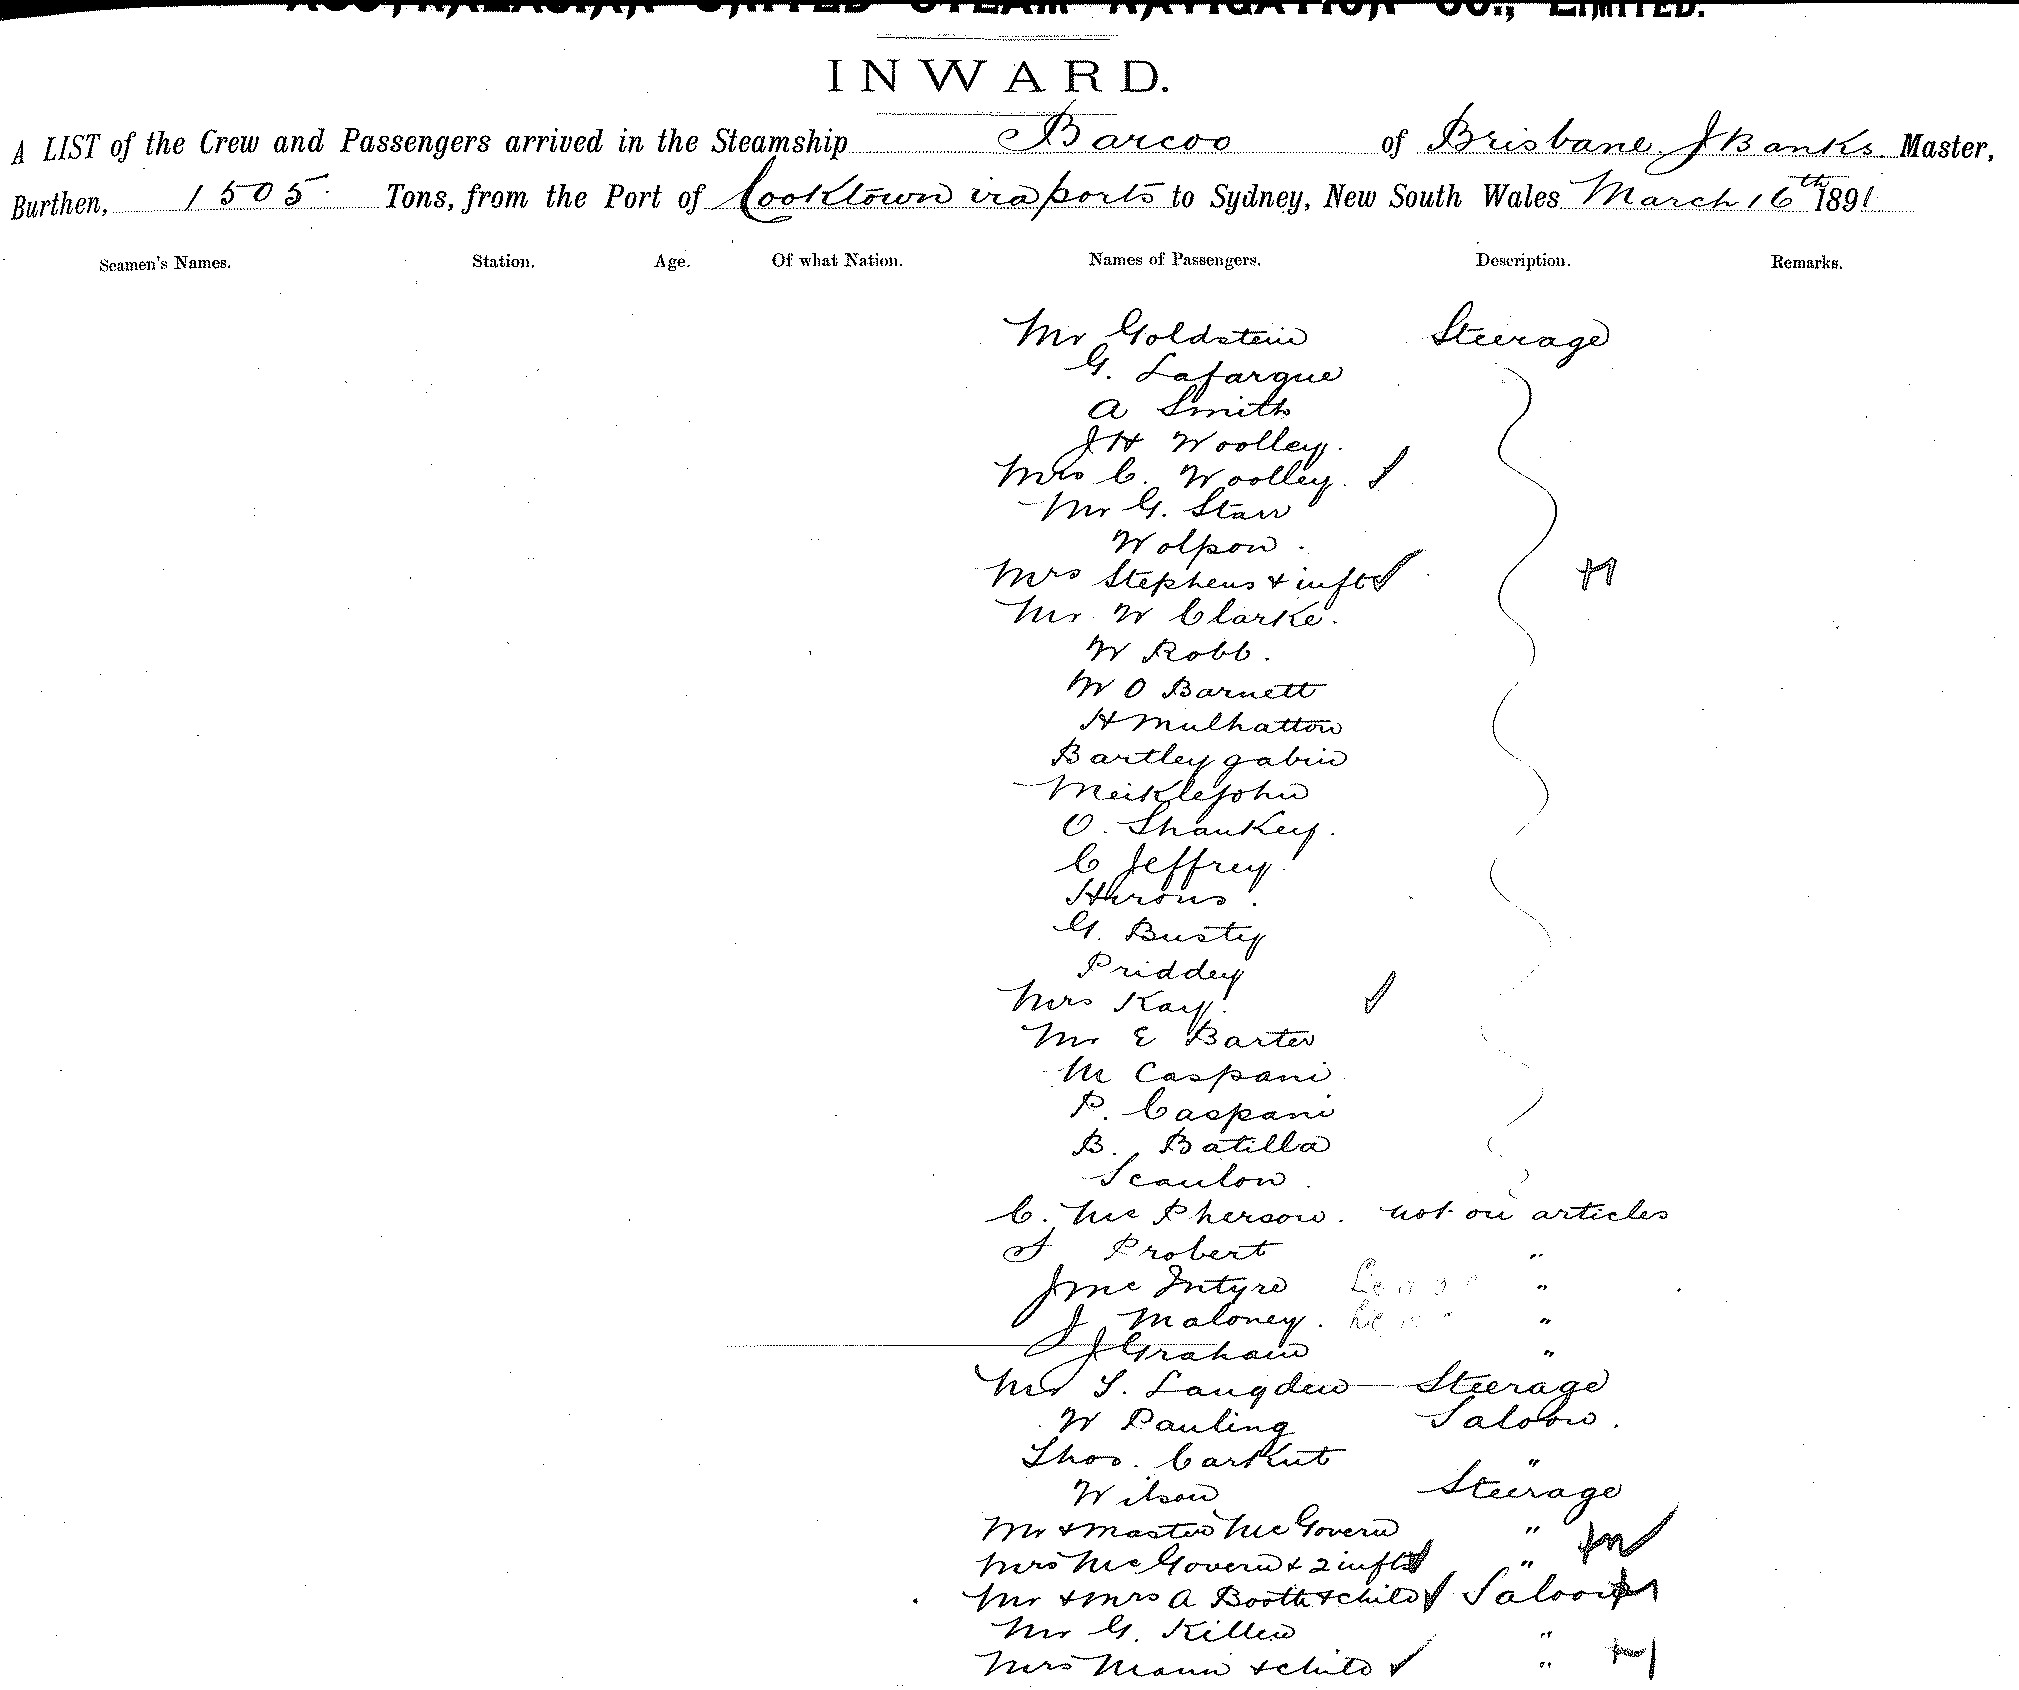 AUSTRALASIAN UNITED STEAM NAVIGATION CO., LIMITED.
INWARD.
A LIST of the Crew and Passengers arrived in the Steamship Barcoo of Brisbane J Banks Master,
Burthen, 1505 Tons, from the Port of Cooktown via ports to Sydney, New South Wales March 16th 1891
Seamen's Names. Station. Age. Of what Nation. Names of Passengers. Description. Remarks.
Mr Goldstein Steerage
G. Lafargue
A Smith
J H Woolley.
Mrs C. Woolley.
Mr G. Starr
Wolpon.
Mrs Stephens & inft
Mr W Clarke.
W Robb.
W O Barnett
H Mulhatton
Bartley gabin
Meiklejohn
O. Shankey.
C Jeffrey.
Hirons.
G. Busty
Priddey
Mrs Kay.
Mr E Barter
M Caspani
P. Caspani
B. Batilla
Scanlon.
C. McPherson. not on articles
Probert "
J McIntyre "
J Maloney. "
J Graham "
Mr S. Langden Steerage
W Pauling Saloon.
Thos. Carkut "
Wilson Steerage
Mr & Master McGovern "
Mrs McGovern & 2 infts "
Mr & Mrs A Booth & child Saloon
Mr G. Killen "
Mrs Mann & child "